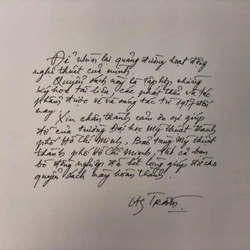 Để nhìn lại quãng đường hoạt động
nghệ thuật của mình.
Quyển sách này là tập hợp những
ký họa tài liệu các phác thảo và tác
phẩm được vẽ và sáng tác từ 1977 đến
nay.
Xin chân thành cảm ơn sự giúp
đỡ của trường Đại học Mỹ thuật thành
phố Hồ Chí Minh, Bảo tàng Mỹ thuật
thành phố Hồ Chí Minh,
bè đồng nghiệp đã hết lòng giúp đỡ cho
quyển sách này hoàn thành.